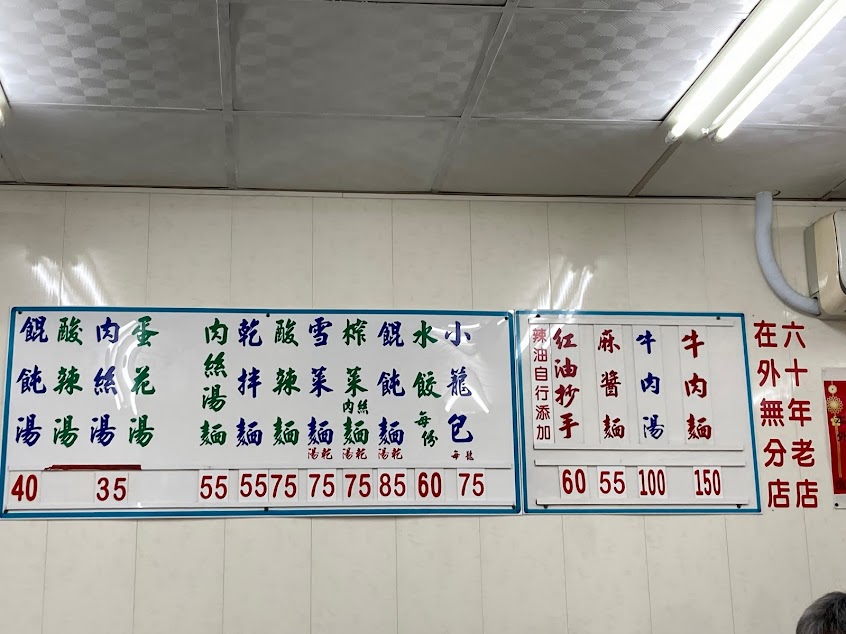 六十年老店
在外無分店
牛肉麵
150
牛肉湯
100
麻醬麵
55
紅油抄手
60
辣油自行添加
小籠包
每籠
75
水餃
每份
60
餛飩麵
湯乾
85
榨菜肉絲麵
湯乾
75
雪菜麵
湯乾
75
酸辣麵
75
乾拌麵
55
肉絲湯麵
55
蛋花湯
肉絲湯
35
酸辣湯
餛飩湯
40